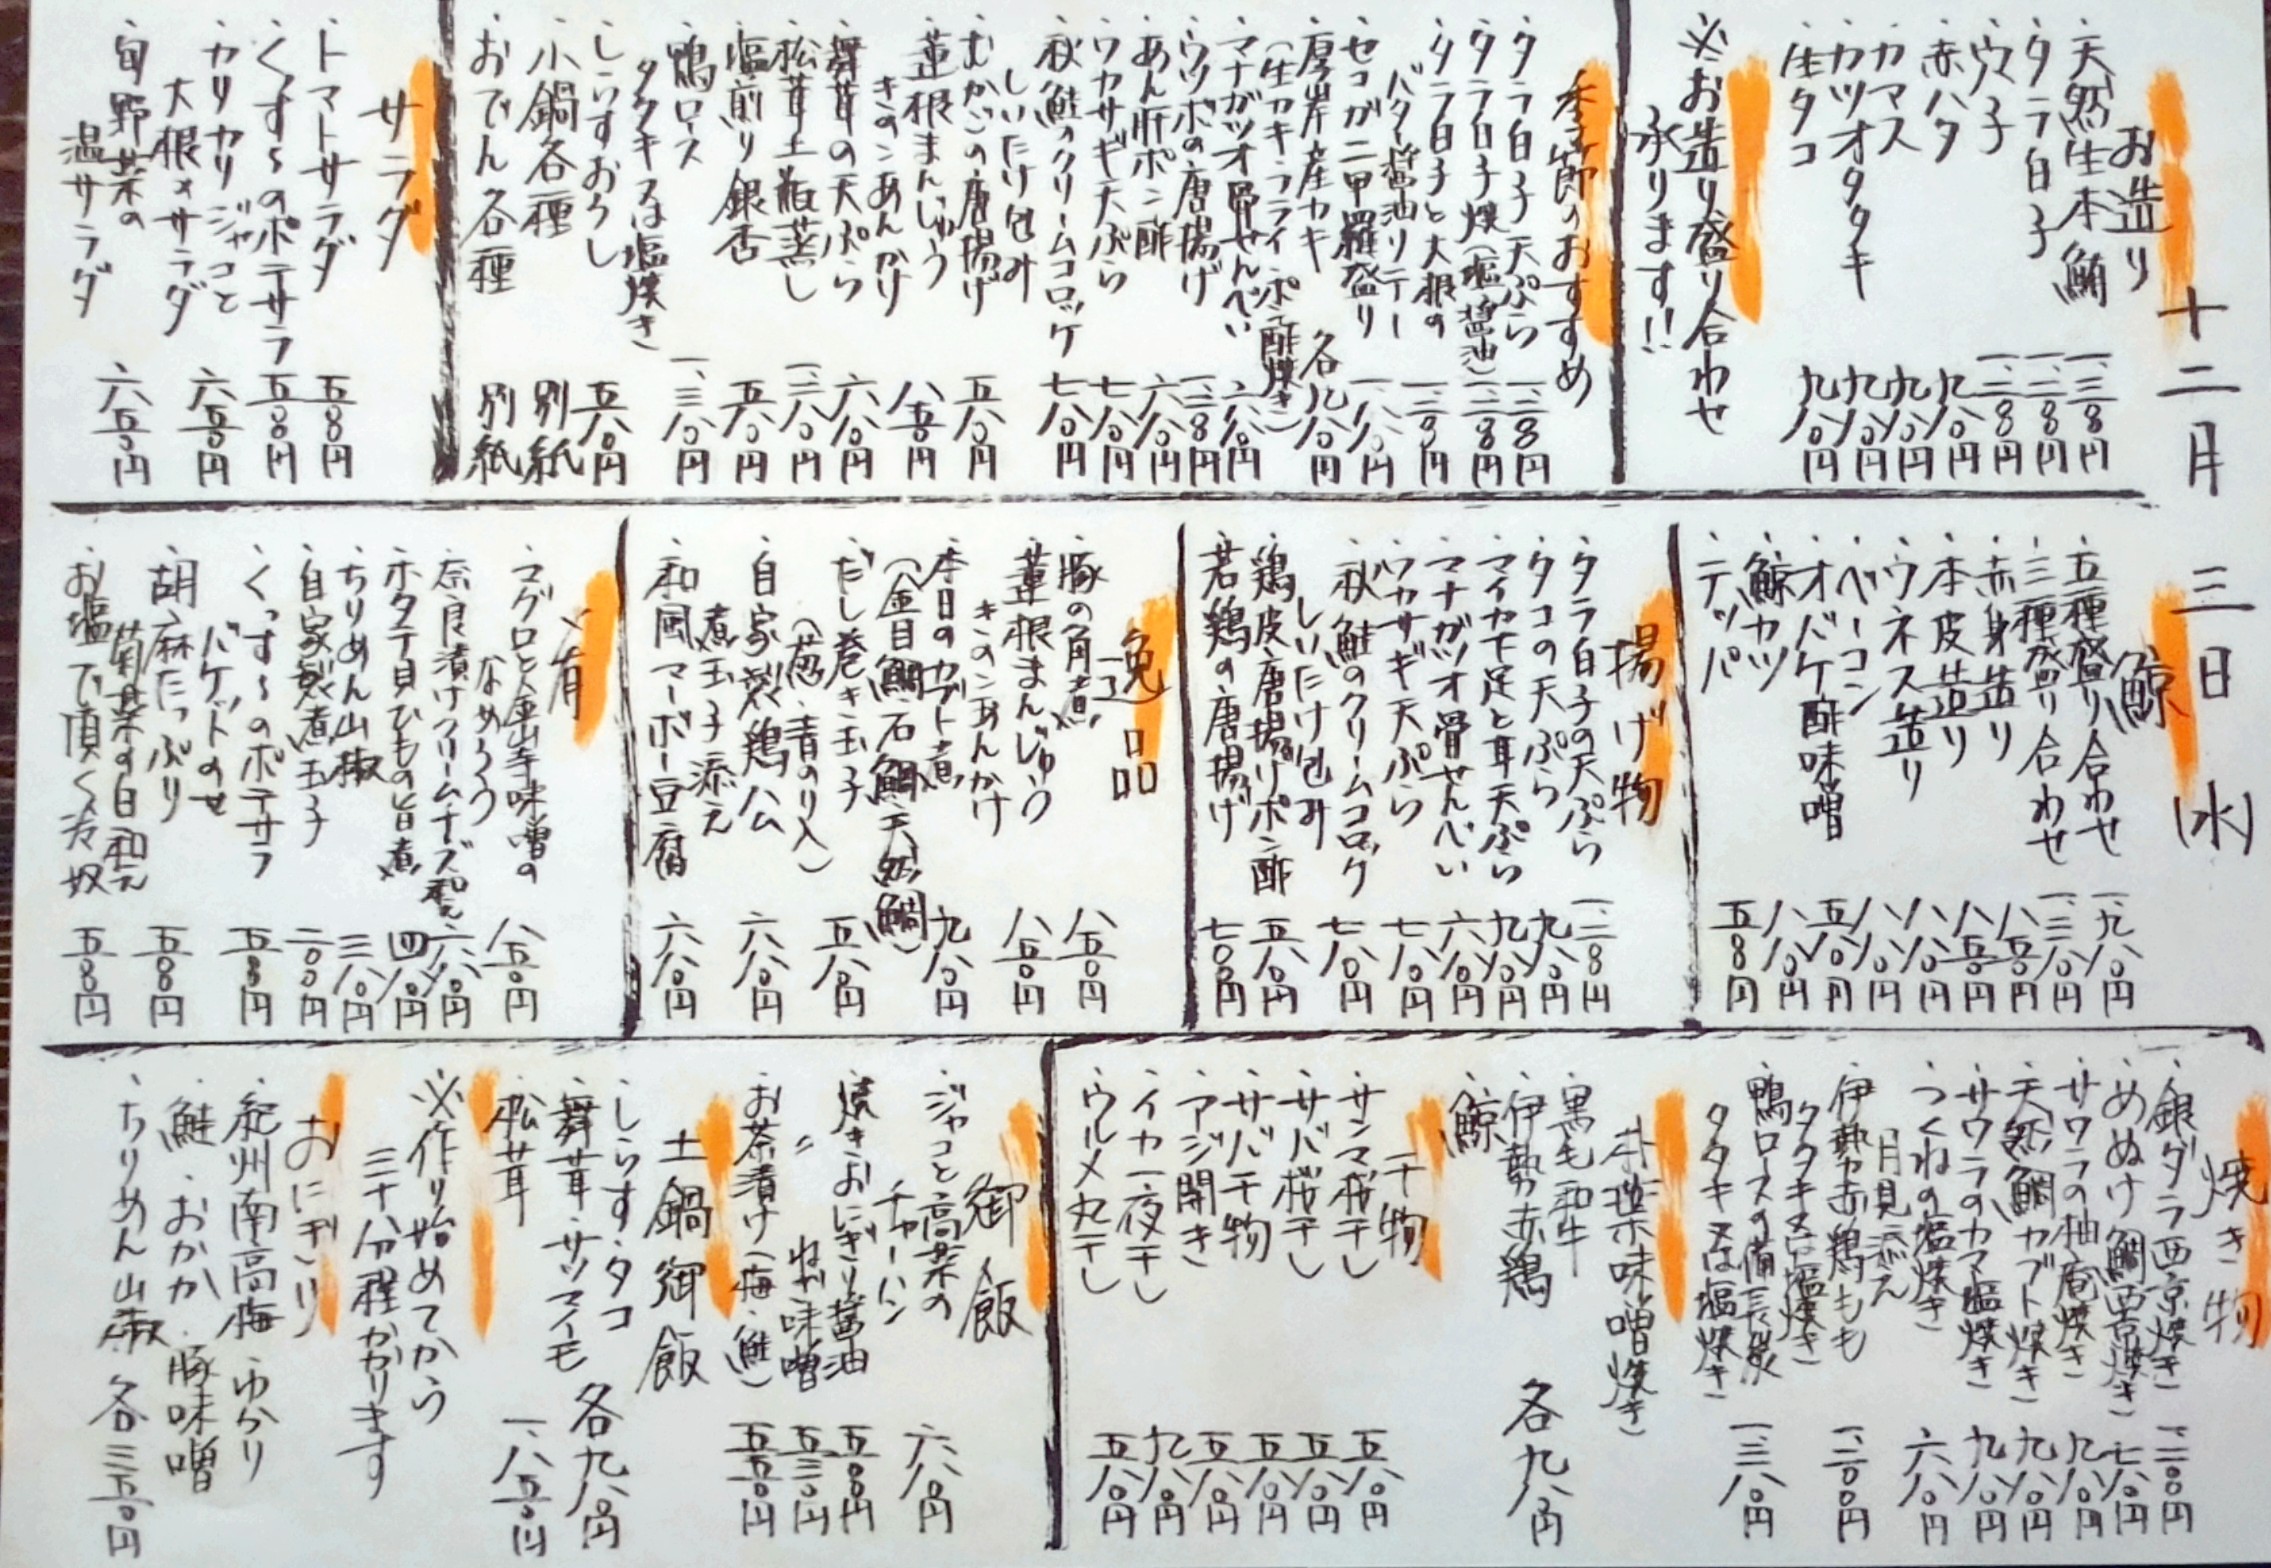 十二月三日(水)
お造り
・天然生本鮪 一、三八〇円
・タラ白子 一、二八〇円
・ウニ
・赤ハタ 九八〇円
・カマス 九八〇円
・カツオタタキ 九八〇円
・生タコ 九八〇円
※お造り盛り合わせ
承ります!!
季節のおすすめ
・タラ白子天ぷら 一、二八〇円
・タラ白子焼(塩・醤油) 一、二八〇円
・タラ白子と大根の
バター醤油ソテー
・セコガニ甲羅盛り 一、八八〇円
・厚岸産カキ
(生・カキフライ・ポン酢・焼き) 各九八〇円
・マナガツオ骨せんべい 六八〇円
・ウツボの唐揚げ
・あん肝ポン酢 六八〇円
・ワカサギ天ぷら 七八〇円
・秋鮭のクリームコロッケ
しいたけ包み 七八〇円
・むかごの唐揚げ 五八〇円
・蓮根まんじゅう
きのこあんかけ 八五〇円
・舞茸の天ぷら 六八〇円
・松茸土瓶蒸し
・塩煎り銀杏 五八〇円
・鴨ロース
タタキ又は塩焼き 一、三八〇円
・しらすおろし 五八〇円
・小鍋各種 別紙
・おでん各種 別紙
サラダ
・トマトサラダ 五八〇円
・くっす〜のポテサラ 五八〇円
・カリカリジャコと
大根のサラダ 六五〇円
・旬野菜の
温サラダ 六五〇円
鯨
・五種盛り合わせ 一、九八〇円
・三種盛り合わせ 一、三八〇円
・赤身造り 八五〇円
・本皮造り 八五〇円
・ウネス造り 八八〇円
・ベーコン 八八〇円
・オバケ酢味噌 五八〇円
・鯨カツ 八八〇円
・テッパ 五八〇円
揚げ物
・タラ白子の天ぷら 一、二八〇円
・タコの天ぷら 九八〇円
・マイカ下足と耳天ぷら 九八〇円
・マナガツオ骨せんべい 六八〇円
・ワカサギ天ぷら 七八〇円
・秋鮭のクリームコロッケ
しいたけ包み 七八〇円
・鶏皮唐揚げポン酢 五八〇円
・若鶏の唐揚げ
逸品
・豚の角煮 八五〇円
・蓮根まんじゅう
きのこあんかけ 八五〇円
・本日のカブト煮
(金目鯛・石鯛・天然鯛) 九八〇円
・だし巻き玉子
(葱・青のり入) 五八〇円
・自家製鶏ハム
煮玉子添え 六八〇円
・和風マーボー豆腐 六八〇円
・マグロと金山寺味噌の
なめろう 八五〇円
・奈良漬けクリームチーズ和え 六八〇円
・ホタテ貝ひもの旨煮 四八〇円
・ちりめん山椒 三八〇円
・自家製煮玉子 二〇〇円
・くっす〜のポテサラ
バケットのせ 五八〇円
・胡麻たっぷり
菊菜の白和え 五八〇円
・お塩で頂く冷奴 五八〇円
焼き物
・銀ダラ西京焼き
・めぬけ鯛西京焼き
・サワラの柚庵焼き 九八〇円
・天然鯛カブト焼き 九八〇円
・サワラのカマ塩焼き 九八〇円
・つくねの塩焼き
月見添え 六八〇円
・伊勢赤鶏もも
タタキ又は塩焼き
・鴨ロースの備長炭
タタキ又は塩焼き 一、三八〇円
朴葉味噌焼き
・黒毛和牛
・伊勢赤鶏
・鯨
各九八〇円
干物
・サンマ桜干し 五八〇円
・サバ桜干し 五八〇円
・サバ干物 五八〇円
・アジ開き 五八〇円
・イカ一夜干し 九八〇円
・ウルメ丸干し 五八〇円
御飯
・ジャコと高菜の
チャーハン 六八〇円
・焼きおにぎり醤油 五〇〇円
〃 ねぎ味噌 五三〇円
・お茶漬け(梅・鮭) 五五〇円
土鍋御飯
・しらす・タコ
・舞茸・サツマイモ 各九八〇円
・松茸 一、八五〇円
※作り始めてから
三十分程かかります
おにぎり
・紀州南高梅・ゆかり
・鮭・おかか・豚味噌
・ちりめん山椒 各三五〇円